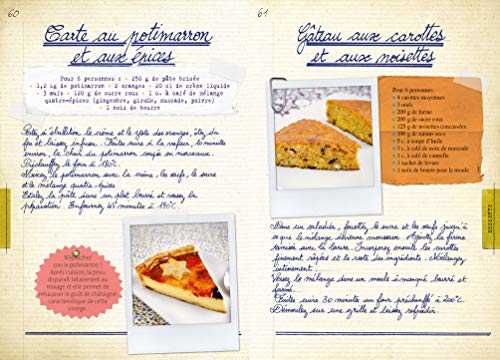 60
Tarte au potimarron
et aux épices
Pour 6 personnes : - 250 g de pâte brisée
- 1,2 kg de potimarron - 2 oranges - 20 cl de crème liquide
- 3 œufs - 120 g de sucre roux - 1 c. à café de mélange
quatre-épices (gingembre, girofle, muscade, poivre)
- 1 noix de beurre
Portez à ébullition la crème et le zeste des oranges,
du feu et laissez infuser. Faites cuire à la vapeur, minutes
environ, la chair du potimarron coupée en morceaux.
Préchauffez le four à 180°C.
Mixez le potimarron avec la crème, les œufs, le sucre
et le mélange quatre-épices.
Étalez la pâte dans un plat beurré et versez la
préparation. Enfournez 45 minutes à 180°C.
avec le potimarron.
Après cuisson, la peau
disparaît totalement au
mixage et elle permet de
rehausser le goût de châtaigne
caractéristique de cette
courge.
61
Gâteau aux carottes
et aux noisettes
Pour 6 personnes
- 4 carottes moyennes
- 3 œufs
- 200 g de farine
- 200 g de sucre roux
- 125 g de noisettes concassées
- 100 g de raisins secs
- 5 c. à soupe d'huile
- ½ c. à café de noix de muscade
- 1 c. à café de cannelle
- 1 sachet de levure
- 1 noix de beurre pour le moule
Dans un saladier, fouettez le sucre et les œufs jusqu'à
ce que le mélange devienne mousseux. Ajoutez la farine
tamisée avec la levure. Incorporez ensuite les carottes
finement râpées et le reste des ingrédients. Mélangez
intimement.
Versez le mélange dans un moule à manqué beurré et
fariné.
Faites cuire 30 minutes au four préchauffé à 200°C.
Démoulez sur une grille et laissez refroidir.
RECETTE